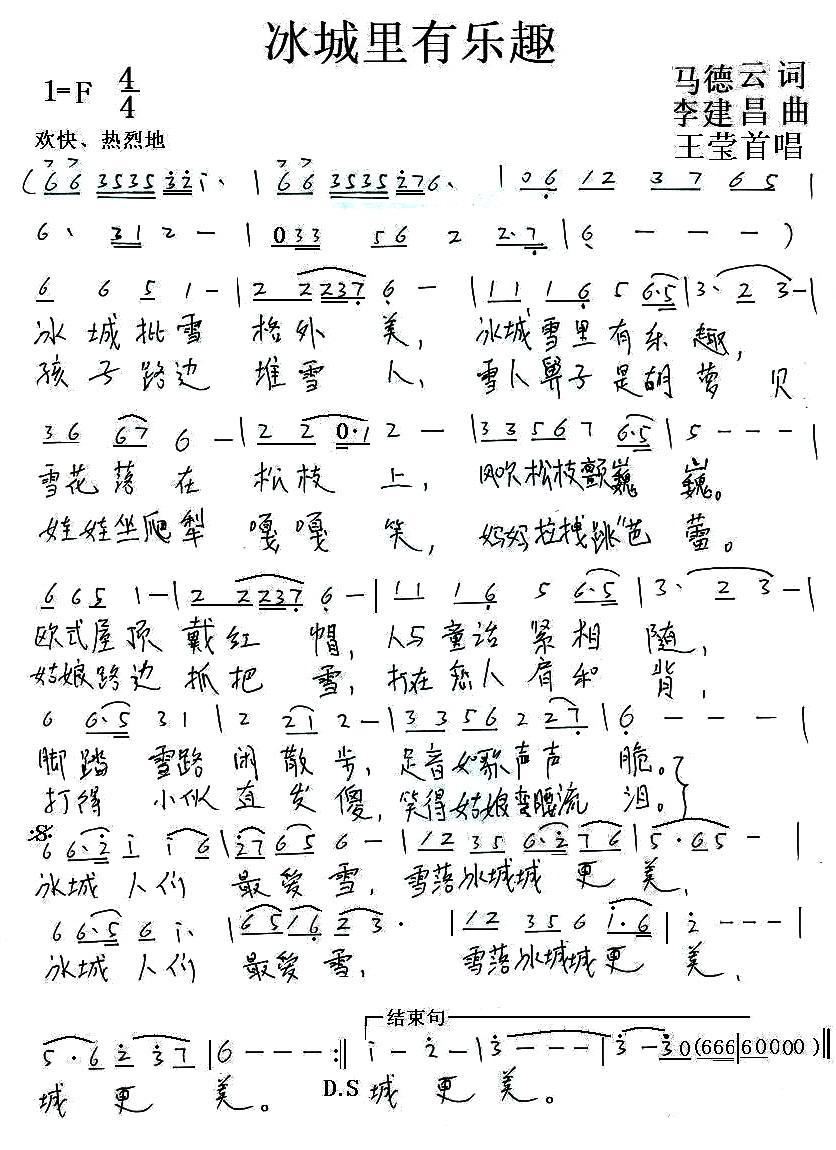 冰城里有乐趣
1=F 4/4
马德云 词
李建昌 曲
王莹首唱
欢快、热烈地
(66 3535 32i、|66 3535 276、|06 12 37 65|
6、312-|033 56 2 2·7|6---)
6 6 5 1-|2 2237 6-|11 16 5 6·5|3·23-|
冰城批雪格外美，冰城雪里有乐趣，
孩子路边堆雪人，雪人鼻子是胡萝贝
36 67 6-|2 2 0·1 2-|33567 6·5|5---|
雪花落在松枝上，风吹松枝颤巍巍。
娃娃坐爬犁嘎嘎笑，妈妈拉拽跳"芭蕾。
6 65 1-|2 2237 6-|11 16 5 6·5|3·23-|
欧式屋顶戴红帽，人与童话紧相随，
姑娘路边抓把雪，打在恋人肩和背，
6 6·5 31|2 2i 2-|3356 2 27|6---|
脚踏雪路闲散步，足音如歌声声脆。
打得小伙直发傻，笑得姑娘弯腰流泪。
6 6·2 i i6|27 65 6-|12 35 6·2 76|5·65-|
冰城人们最爱雪，雪落冰城城更美，
6 6·5 6 i·|65 16 23·|12 356 i·6|2---|
冰城人们最爱雪，雪落冰城城更美，
结束句
5·6 2 37|6---:‖i-2-|3---|3-30(666|60000)‖
城更美。D.S城更美。